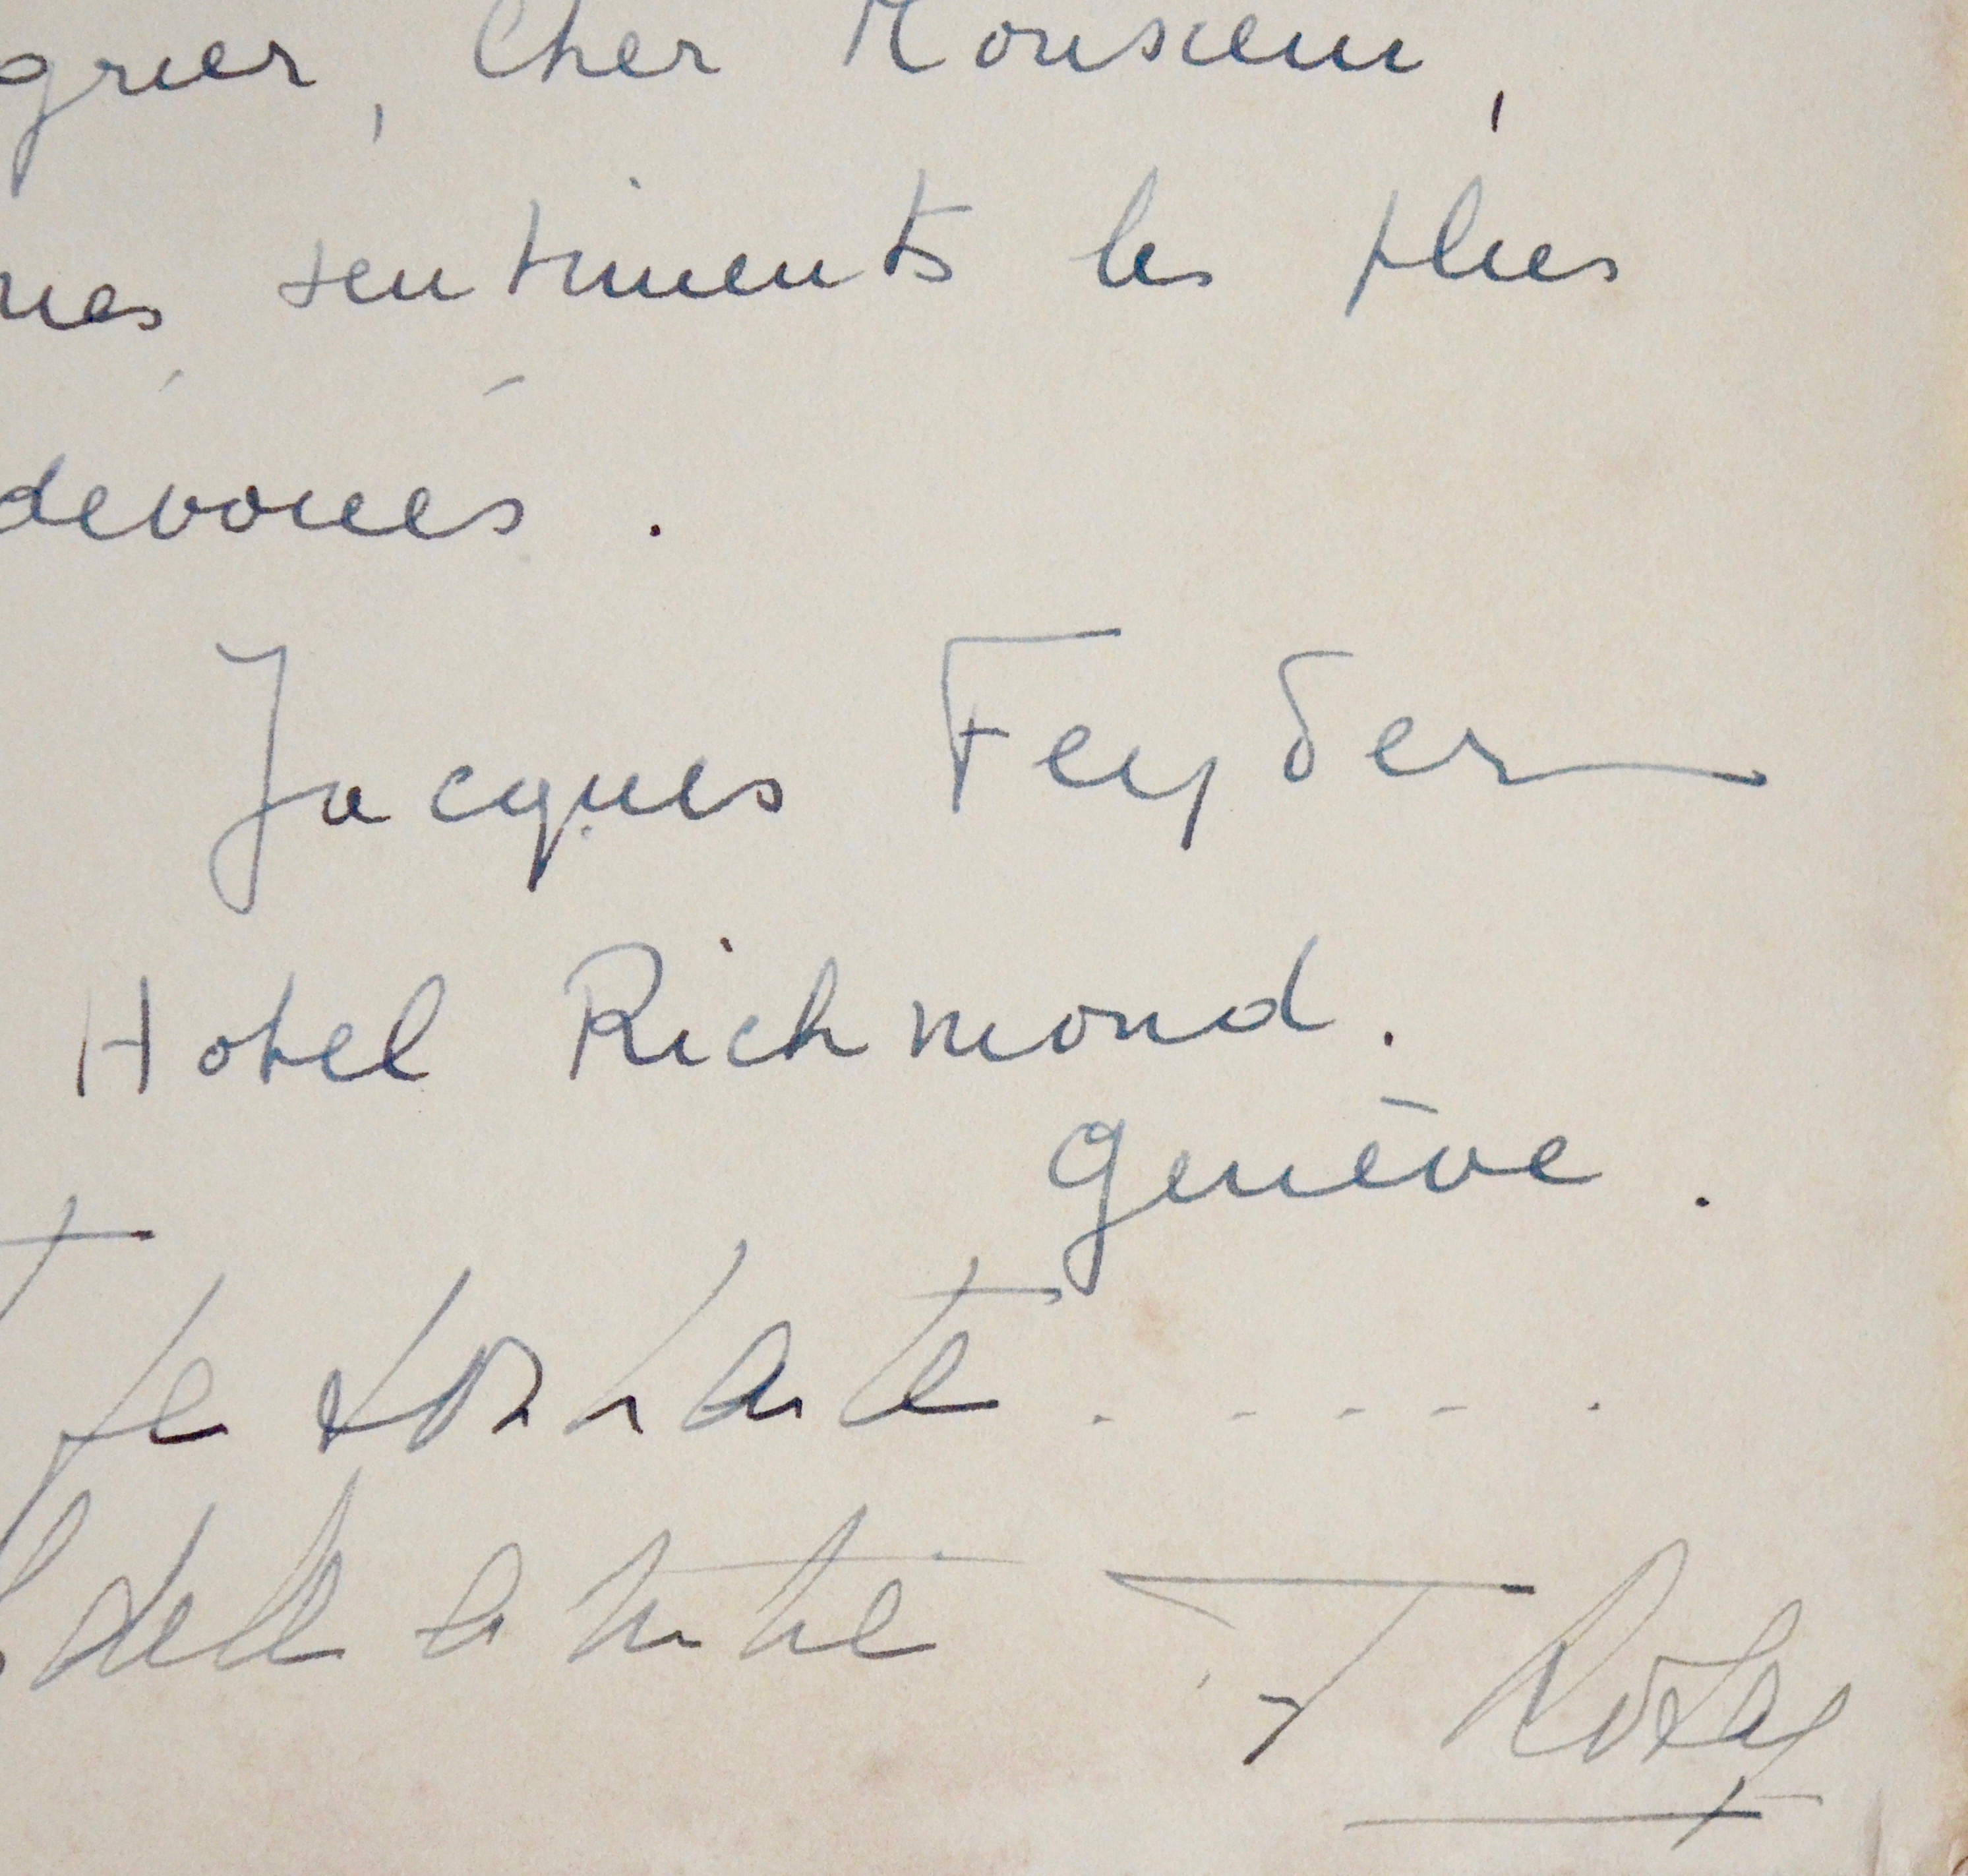 gréer, Cher Monsieur,
mes sentiments les plus
dévoués.
Jacques Feyder
Hotel Richmond.
Genève.
Je souhaite . . . . .
fidelle amitié F Rosay